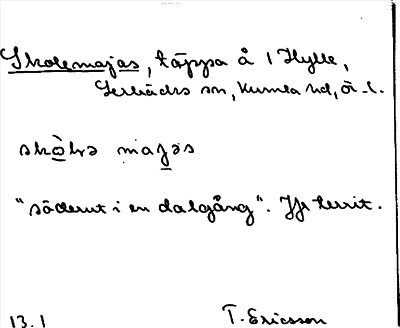 Skolemajas, täppa å 1 Hylle,
Lerbäcks sn, Kumla hd, Ö-l.
majəs
"söderut i en dalgång". Jfr territ.
13.1 T. Ericsson